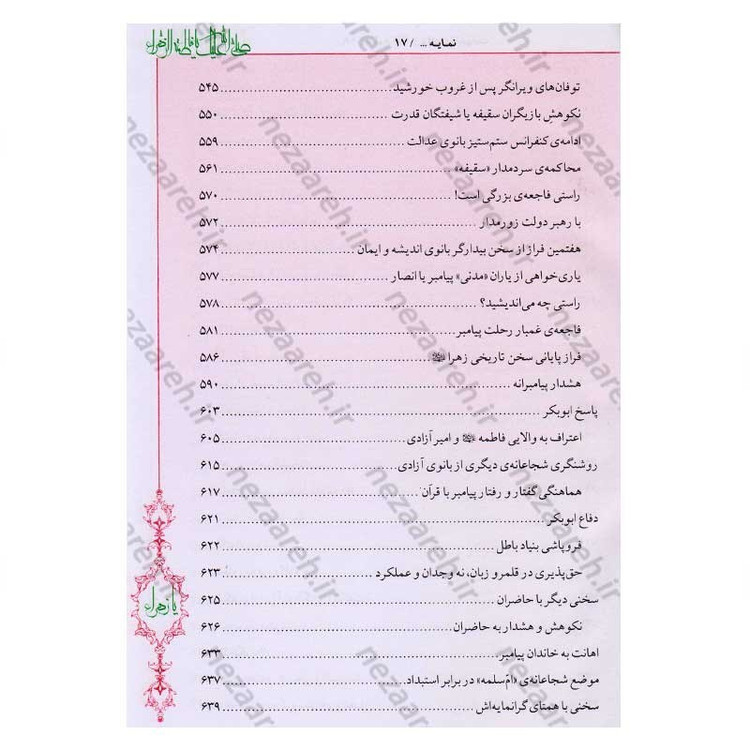 نمایه ... / ۱۷
توفان‌های ویرانگر پس از غروب خورشید ........ ۵۴۵
نکوهش بازیگران سقیفه یا شیفتگان قدرت ........ ۵۵۰
ادامه‌ی کنفرانس ستم‌ستیز بانوی عدالت ........ ۵۵۹
محاکمه‌ی سردمدار «سقیفه» ........ ۵۶۱
راستی فاجعه‌ی بزرگی است! ........ ۵۷۰
با رهبر دولت زورمدار ........ ۵۷۲
هفتمین فراز از سخن بیدارگر بانوی اندیشه و ایمان ........ ۵۷۴
یاری‌خواهی از یاران «مدنی» پیامبر یا انصار ........ ۵۷۷
راستی چه می‌اندیشید؟ ........ ۵۷۸
فاجعه‌ی غمبار رحلت پیامبر ........ ۵۸۱
فراز پایانی سخن تاریخی زهرا ........ ۵۸۶
هشدار پیامبرانه ........ ۵۹۰
پاسخ ابوبکر ........ ۶۰۳
اعتراف به والایی فاطمه و امیر آزادی ........ ۶۰۵
روشنگری شجاعانه‌ی دیگری از بانوی آزادی ........ ۶۱۵
هماهنگی گفتار و رفتار پیامبر با قرآن ........ ۶۱۷
دفاع ابوبکر ........ ۶۲۱
فروپاشی بنیاد باطل ........ ۶۲۲
حق‌پذیری در قلمرو زبان، نه وجدان و عملکرد ........ ۶۲۳
سخنی دیگر با حاضران ........ ۶۲۵
نکوهش و هشدار به حاضران ........ ۶۲۶
اهانت به خاندان پیامبر ........ ۶۳۳
موضع شجاعانه‌ی «امّ‌سلمه» در برابر استبداد ........ ۶۳۷
سخنی با همتای گرانمایه‌اش ........ ۶۳۹
یا زهراء
nezaareh.ir